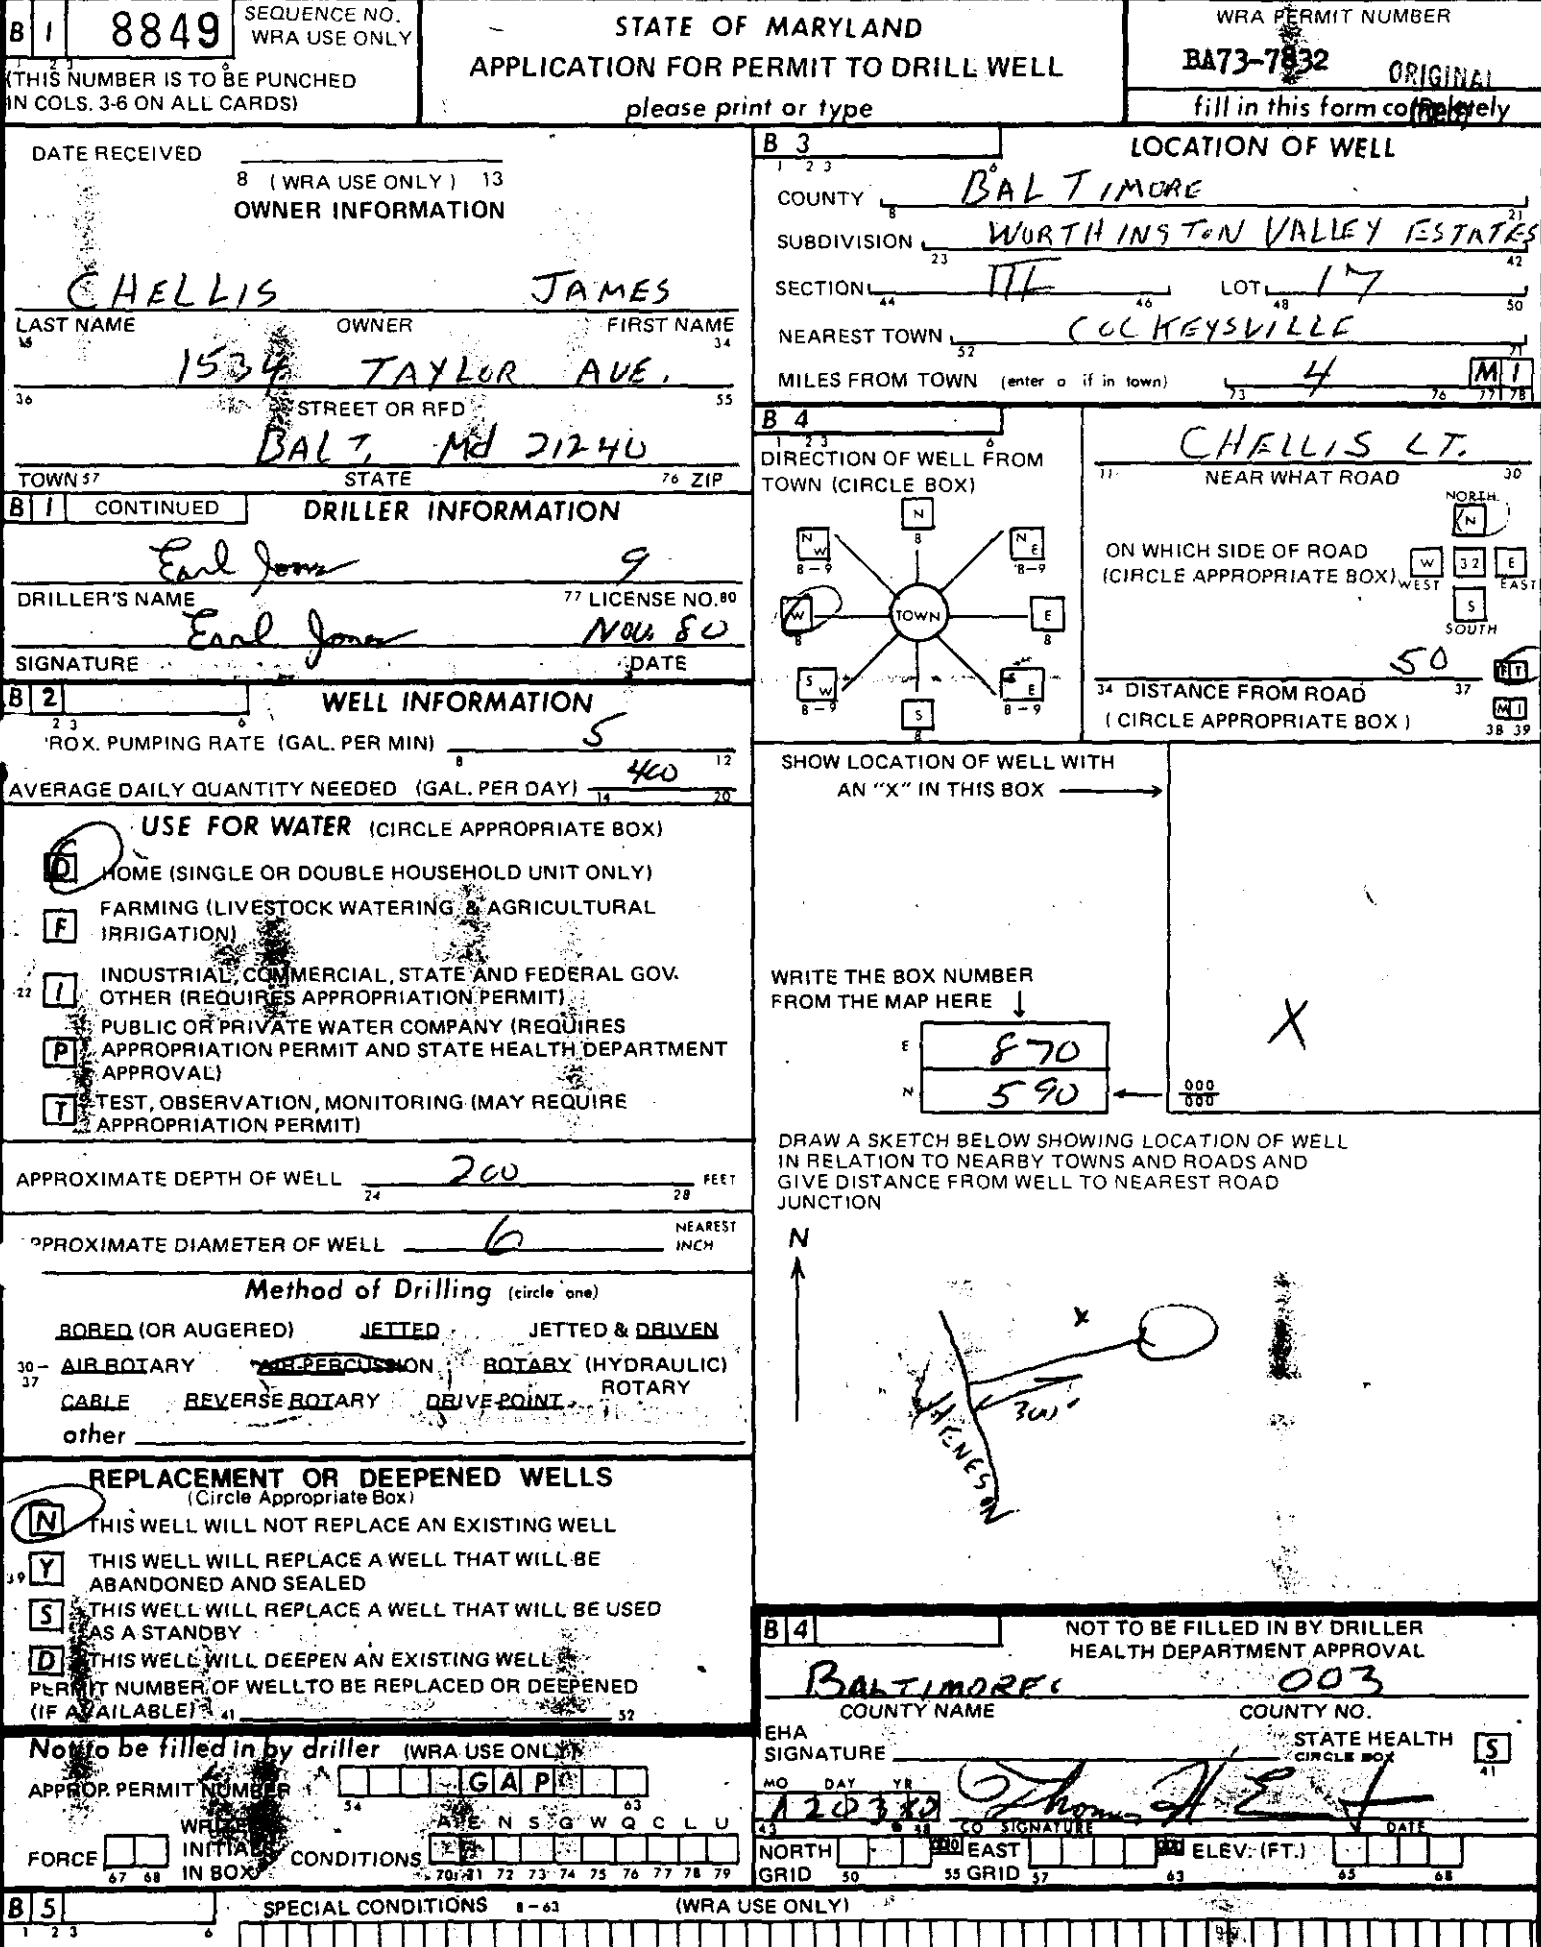 B 1 8849 SEQUENCE NO.
WRA USE ONLY
1 2 3 6
(THIS NUMBER IS TO BE PUNCHED
IN COLS. 3-6 ON ALL CARDS)
STATE OF MARYLAND
APPLICATION FOR PERMIT TO DRILL WELL
please print or type
WRA PERMIT NUMBER
BA73-7832 ORIGINAL
fill in this form completely
DATE RECEIVED
8 (WRA USE ONLY) 13
OWNER INFORMATION
CHELLIS JAMES
LAST NAME OWNER FIRST NAME
34
1534 TAYLOR AVE.
36 STREET OR RFD 55
BALT. Md 21240
TOWN 57 STATE 76 ZIP
B 1 CONTINUED DRILLER INFORMATION
Earl Jones 9
DRILLER'S NAME 77 LICENSE NO. 80
Earl Jones Nov. 80
SIGNATURE DATE
B 2 WELL INFORMATION
2 3 6
'ROX. PUMPING RATE (GAL. PER MIN) 5
8 12
AVERAGE DAILY QUANTITY NEEDED (GAL. PER DAY) 400
14 20
USE FOR WATER (CIRCLE APPROPRIATE BOX)
D HOME (SINGLE OR DOUBLE HOUSEHOLD UNIT ONLY)
F FARMING (LIVESTOCK WATERING & AGRICULTURAL
IRRIGATION)
22 I INDUSTRIAL, COMMERCIAL, STATE AND FEDERAL GOV.
OTHER (REQUIRES APPROPRIATION PERMIT)
P PUBLIC OR PRIVATE WATER COMPANY (REQUIRES
APPROPRIATION PERMIT AND STATE HEALTH DEPARTMENT
APPROVAL)
T TEST, OBSERVATION, MONITORING (MAY REQUIRE
APPROPRIATION PERMIT)
APPROXIMATE DEPTH OF WELL 200 FEET
24 28
PPROXIMATE DIAMETER OF WELL 6 NEAREST
INCH
Method of Drilling (circle one)
BORED (OR AUGERED) JETTED JETTED & DRIVEN
30-37 AIR ROTARY AIR-PERCUSSION ROTARY (HYDRAULIC)
ROTARY
CABLE REVERSE ROTARY DRIVE-POINT
other
REPLACEMENT OR DEEPENED WELLS
(Circle Appropriate Box)
N THIS WELL WILL NOT REPLACE AN EXISTING WELL
39 Y THIS WELL WILL REPLACE A WELL THAT WILL BE
ABANDONED AND SEALED
S THIS WELL WILL REPLACE A WELL THAT WILL BE USED
AS A STANDBY
D THIS WELL WILL DEEPEN AN EXISTING WELL
PERMIT NUMBER OF WELL TO BE REPLACED OR DEEPENED
(IF AVAILABLE) 41 52
Not to be filled in by driller (WRA USE ONLY)
APPROP. PERMIT NUMBER G A P
54 63
WRITE
INITIALS
IN BOX
FORCE CONDITIONS A E N S G W Q C L U
67 68 70 71 72 73 74 75 76 77 78 79
B 3 LOCATION OF WELL
1 2 3 6
COUNTY BALTIMORE
8 21
SUBDIVISION WORTHINGTON VALLEY ESTATES
23 42
SECTION III LOT 17
44 46 48 50
NEAREST TOWN COCKEYSVILLE
52 71
MILES FROM TOWN (enter o if in town) 4 M I
73 76 77 78
B 4
1 2 3 6
DIRECTION OF WELL FROM
TOWN (CIRCLE BOX)
N
8
N W
8-9
N E
8-9
W
8
TOWN
E
8
S W
8-9
S
8
E
8-9
CHELLIS CT.
11 NEAR WHAT ROAD 30
NORTH
N
ON WHICH SIDE OF ROAD
(CIRCLE APPROPRIATE BOX)
W 32 E
WEST EAST
S
SOUTH
50 F T
34 DISTANCE FROM ROAD 37
(CIRCLE APPROPRIATE BOX) M I
38 39
SHOW LOCATION OF WELL WITH
AN "X" IN THIS BOX
WRITE THE BOX NUMBER
FROM THE MAP HERE
X
E 870
N 590
000
000
DRAW A SKETCH BELOW SHOWING LOCATION OF WELL
IN RELATION TO NEARBY TOWNS AND ROADS AND
GIVE DISTANCE FROM WELL TO NEAREST ROAD
JUNCTION
N
X
300'
B 4 NOT TO BE FILLED IN BY DRILLER
HEALTH DEPARTMENT APPROVAL
BALTIMORE 003
COUNTY NAME COUNTY NO.
EHA
SIGNATURE
STATE HEALTH S
CIRCLE BOX 41
MO DAY YR
120380
43 48 CO SIGNATURE DATE
NORTH
GRID 50 55
000 EAST
GRID 57 63
000 ELEV. (FT.)
65 68
B 5 SPECIAL CONDITIONS 8-63 (WRA USE ONLY)
1 2 3 6